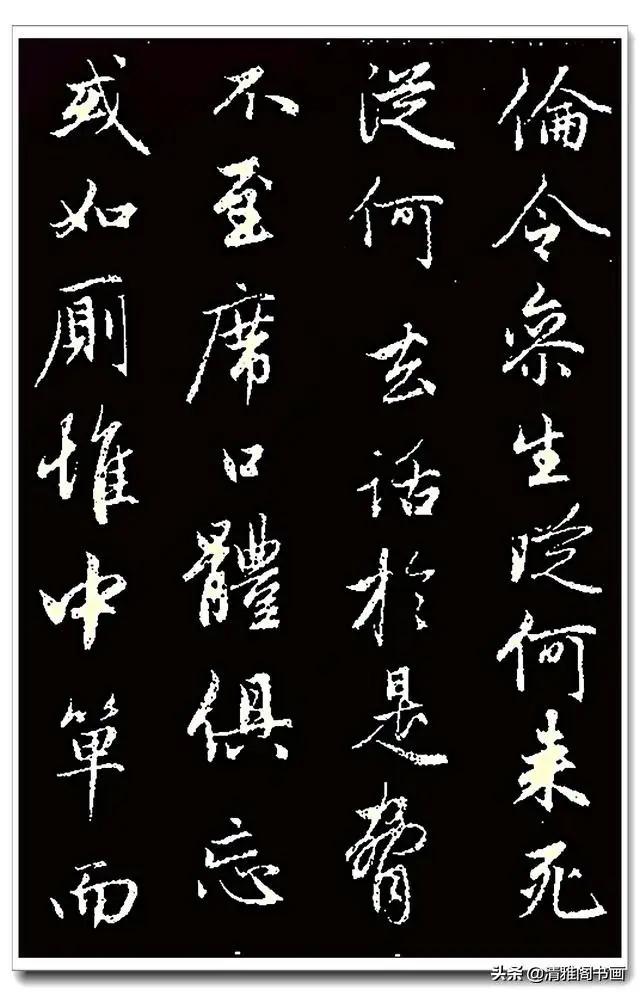 倫令眾生從何来死
從何去話於是脅
不至席口體俱忘
或如厠惟中單而
头条 @清雅阁书画